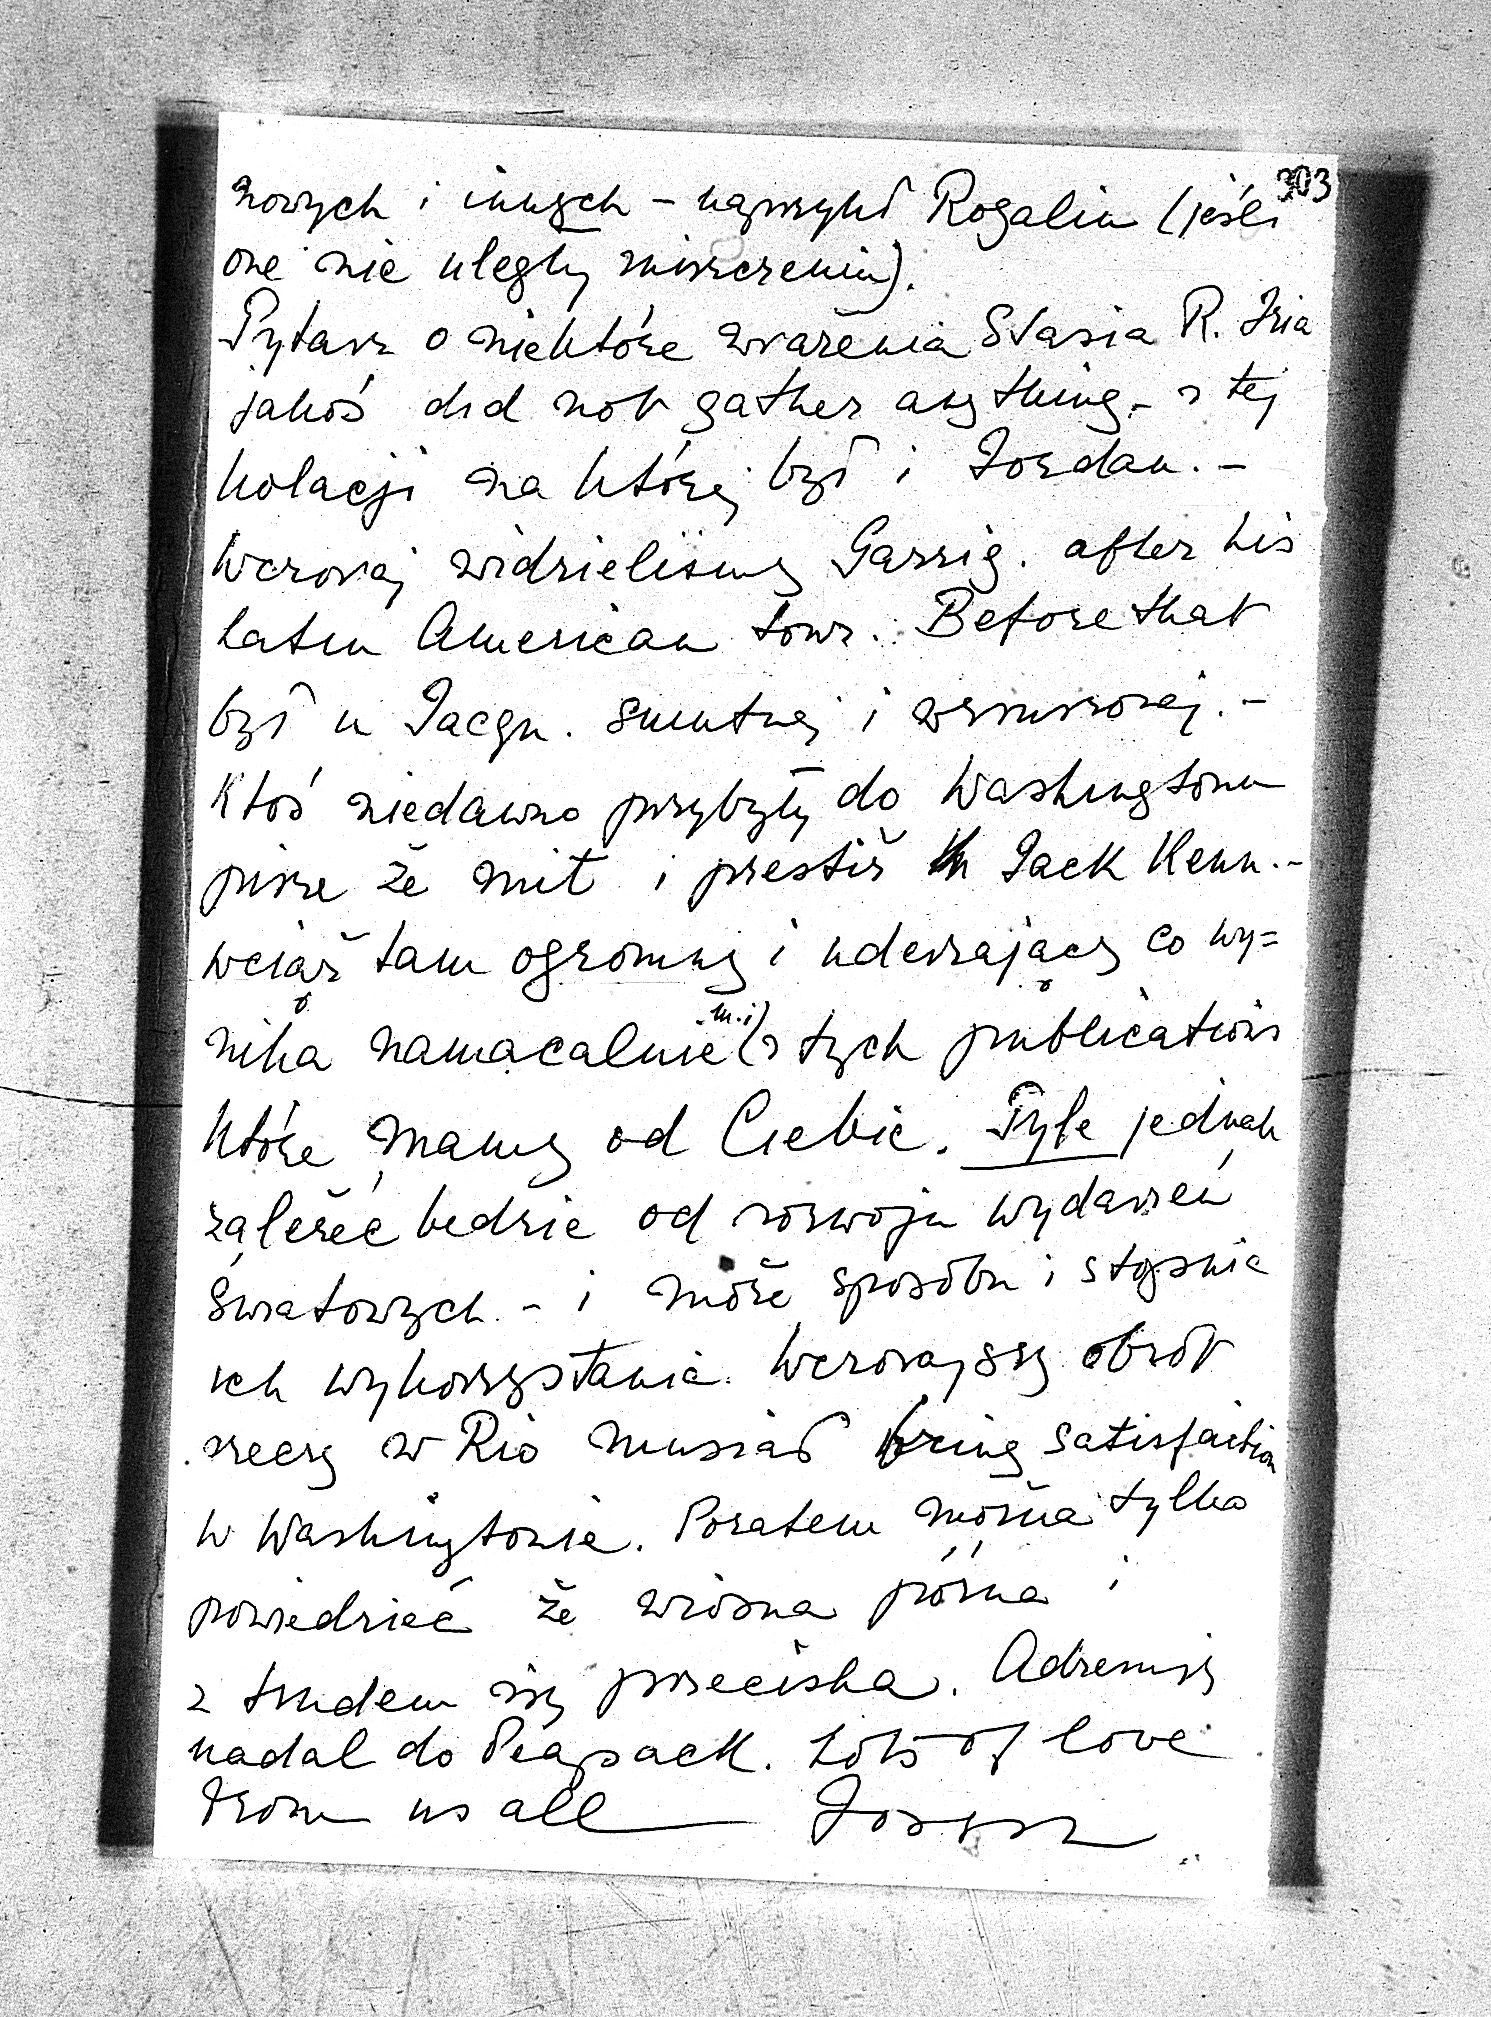 303
nowych i innych – naprzykł Rogalin (jeśli
one nie uległy zniszczeniu).
Pytasz o niektóre wrażenia Stasia R. Iria
jakoś did not gather anything – z tej
kolacji na której był i Jordan. –
Wczoraj widzieliśmy Garrig. after his
Latin American tour. Before that
był u Jacqu. smutnej i wzruszonej. –
Ktoś niedawno przybyły do Washingtonu
pisze że mit i prestiż Jack Kenn. –
wciąż tam ogromny i uderzający co wy=
nika namacalnie (m.i) z tych publications
które mamy od Ciebie. Tyle jednak
zależeć będzie od rozwoju wydarzeń
światowych – i może sposobu i stopnia
ich wykorzystania. Wczorajszy obrót
rzeczy w Rio musiał bring satisfaction
w Washingtonie. Pozatem można tylko
powiedzieć że wiosna późna i
z trudem się przeciska. Adresuję
nadal do Peapack. Lots of love
from us all